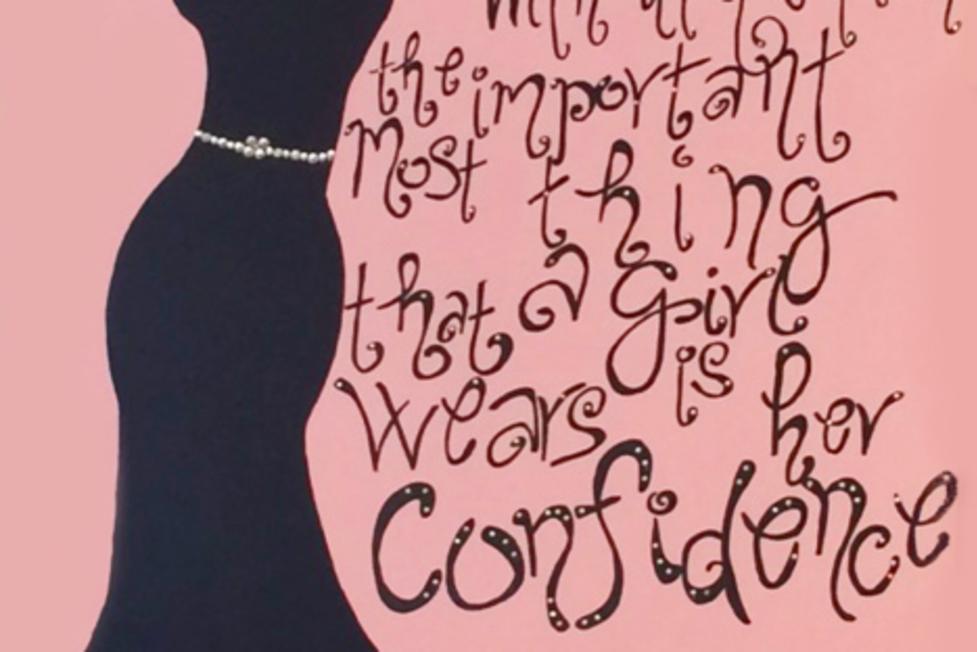 the important
Most thing
that a Girl
Wears is her
Confidence